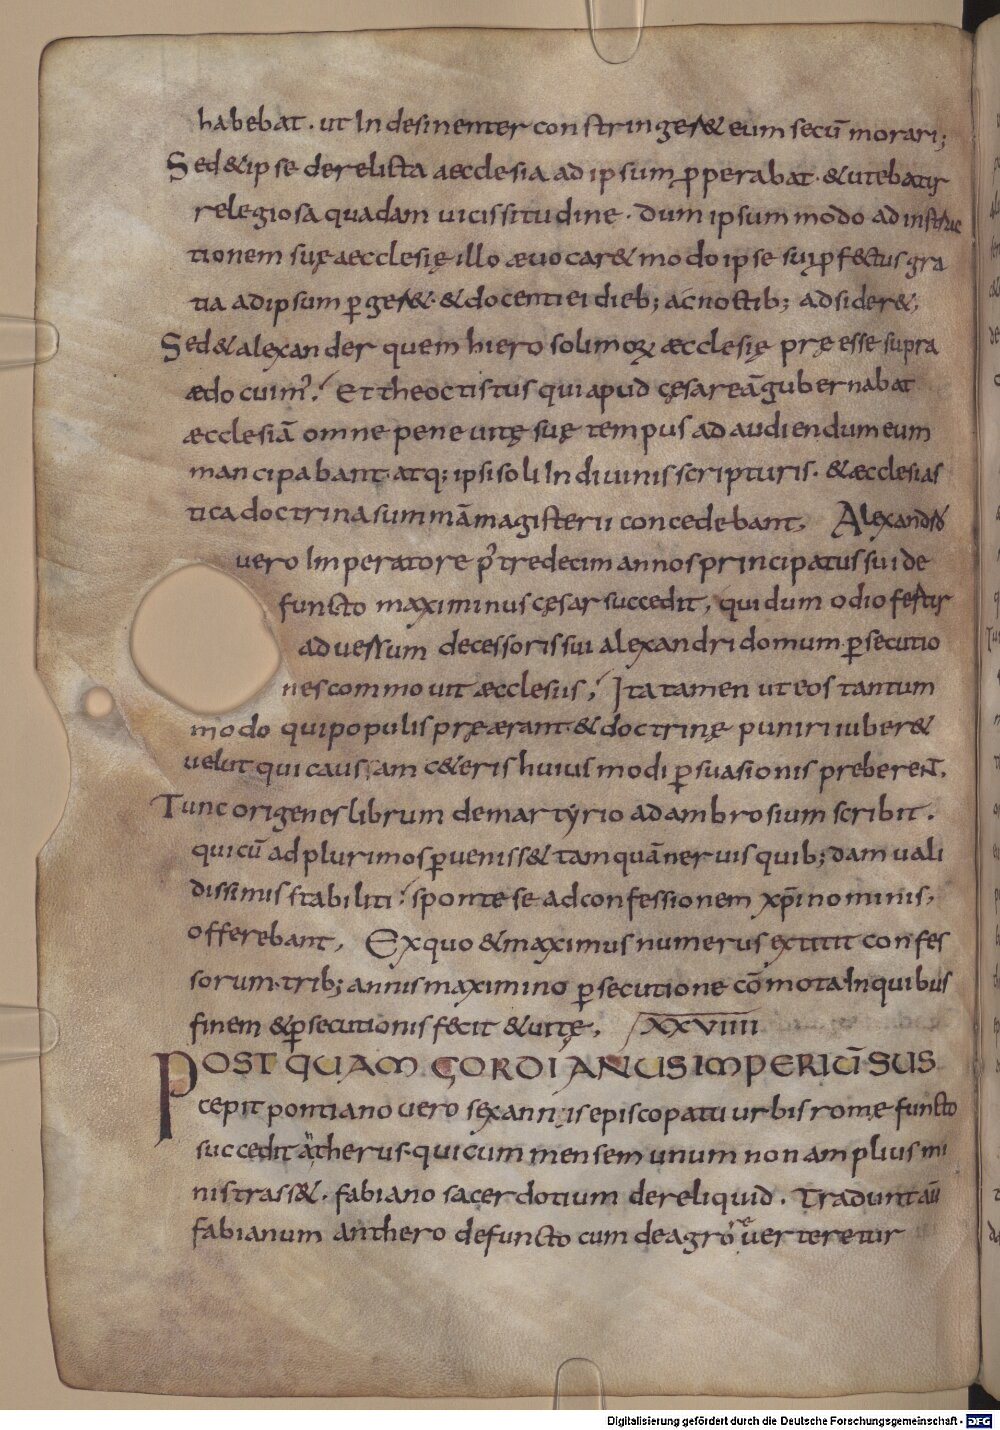 habebat. ut Indesinenter constringer& eum secū morari;
Sed & ipse derelicta aecclesia ad ipsum ꝓperabat. & utebatur
relegiosa quadam uicissitudine. dum ipsum modo ad instruc
tionem suę aecclesię illo ævocar& modo ipse sui ꝓfectus gra
tia ad ipsum ꝑger& & docenti ei dieb; ac noctib; adsider&;
Sed & alexander quem hierosolimoꝝ æcclesię pręesse supra
ædocuim᾽. Et theoctistus qui apud cęsareā gubernabat
æcclesiā omne pene uitę suę tempus ad audiendum eum
mancipabant. atq; ipsi soli In diuinis scripturis. & æcclesias
tica doctrina summā magisterii concedebant. Alexandro
uero Imperatore p᾽ tredecim annos principatus sui de
functo maximinus cęsar succedit, qui dum odio fertur
aduersum decessoris sui alexandri domum ꝑsecutio
nes commouit æcclesiis; Ita tamen ut eos tantum
modo qui populis pręærant & doctrinę puniri iuber&
velut qui caussam c&eris huius modi ꝑsuasionis preberent.
Tunc origenes librum de martyrio ad ambrosium scribit.
qui cū ad plurimos ꝑueniss& tamquā neruis quib;dam uali
dissimis stabiliti. sponte se ad confessionem xp̄i nominis,
offerebant, Ex quo & maximus numerus extitit confes
sorum. trib; annis maximino ꝑsecutione cōmota In quibus
finem & ꝑsecutionis fecit & uitę. XXVIIII
POST QUAM GORDIANUS IMPERIŪ SUS
cepit pontiano uero sex annis episcopatu urbis romę functo
succedit antherus. qui cum mensem unum non amplius mi
nistrass&. fabiano sacerdotium dereliquid. Tradunt aū
fabianum anthero defuncto cum de agro reuerteretur
Digitalisierung gefördert durch die Deutsche Forschungsgemeinschaft - DFG